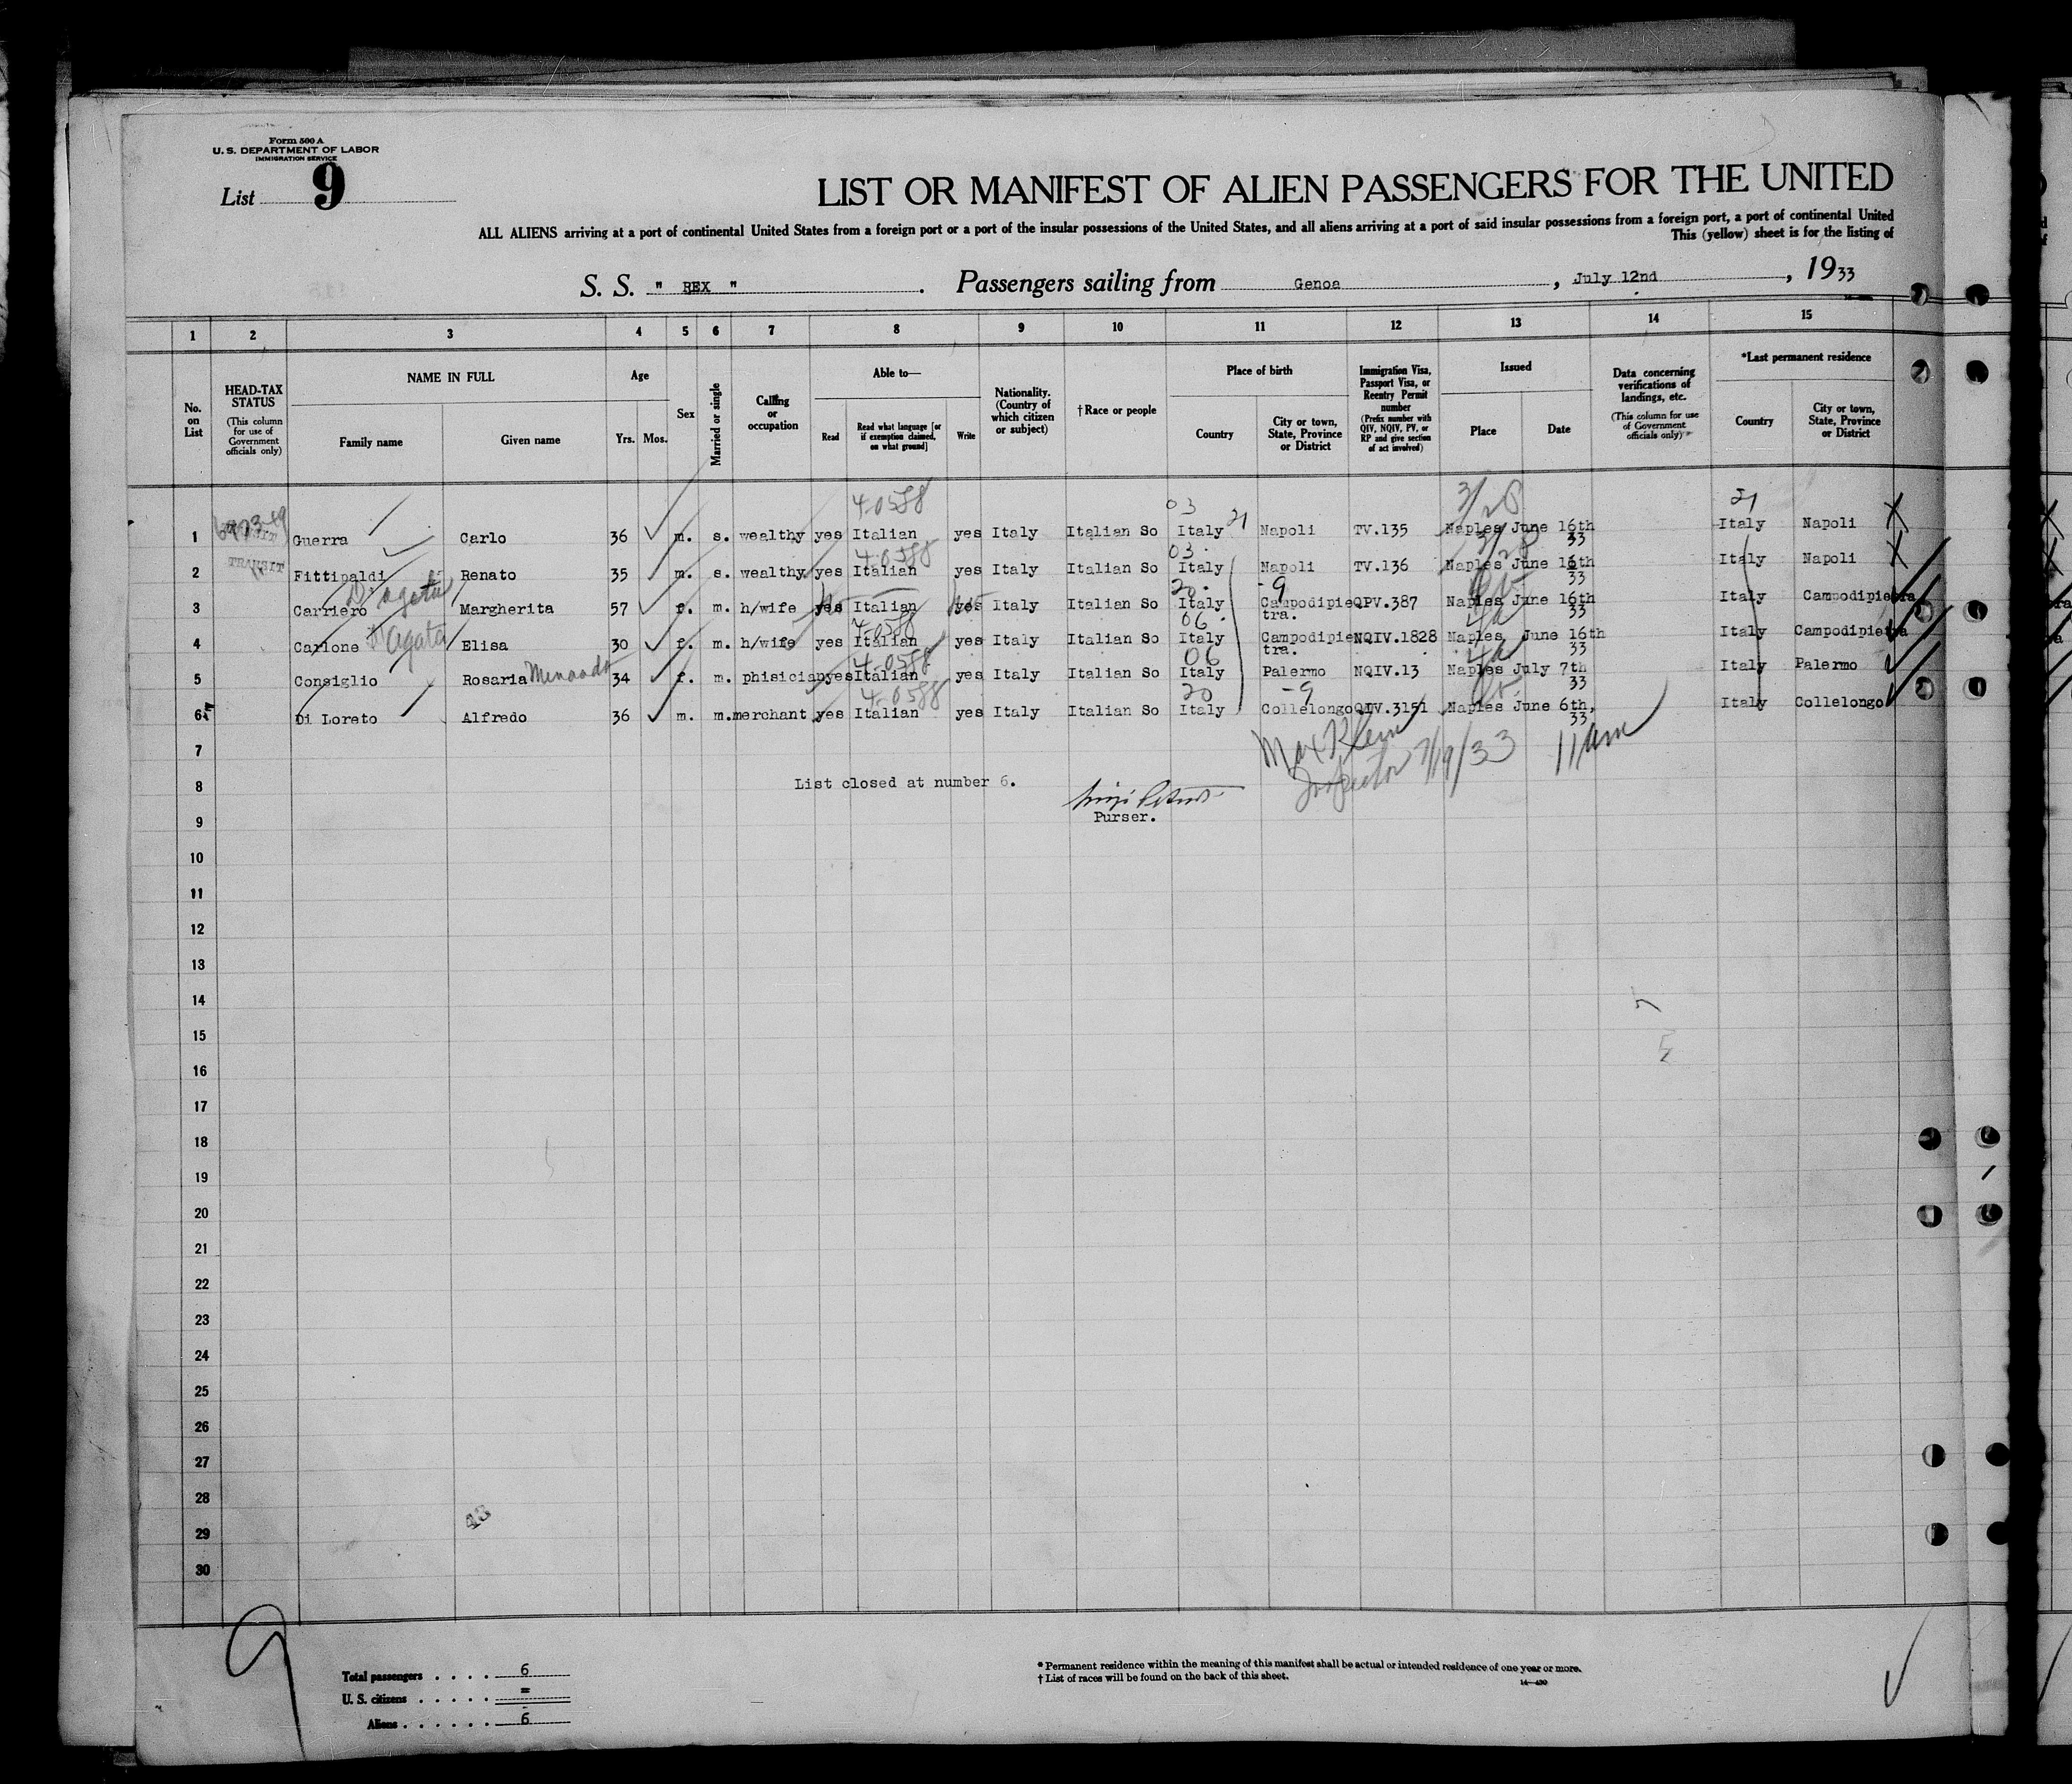 Form 500 A
U. S. DEPARTMENT OF LABOR
IMMIGRATION SERVICE
List 9
LIST OR MANIFEST OF ALIEN PASSENGERS FOR THE UNITED
ALL ALIENS arriving at a port of continental United States from a foreign port or a port of the insular possessions of the United States, and all aliens arriving at a port of said insular possessions from a foreign port, a port of continental United
This (yellow) sheet is for the listing of
S. S. " REX " . Passengers sailing from Genoa , July 12nd , 1933
1 2 3 4 5 6 7 8 9 10 11 12 13 14 15
No. on List
HEAD-TAX STATUS (This column for use of Government officials only)
NAME IN FULL
Family name Given name
Age
Yrs. Mos.
Sex
Married or single
Calling or occupation
Able to—
Read Read what language [or if exemption claimed, on what ground] Write
Nationality. (Country of which citizen or subject)
†Race or people
Place of birth
Country City or town, State, Province or District
Immigration Visa, Passport Visa, or Reentry Permit number (Prefix number with QIV, NQIV, PV, or RP and give section of act involved)
Issued
Place Date
Data concerning verifications of landings, etc. (This column for use of Government officials only)
*Last permanent residence
Country City or town, State, Province or District
4-0588 03 3/28 21
1 Guerra Carlo 36 m. s. wealthy yes Italian yes Italy Italian So Italy 21 Napoli TV.135 Naples June 16th 33 Italy Napoli
4-0588 03
2 TRANSIT Fittipaldi Renato 35 m. s. wealthy yes Italian yes Italy Italian So Italy Napoli TV.136 Naples June 16th 33 Italy Napoli
D'agata 20 -9
3 Carriero Margherita 57 f. m. h/wife yes Italian yes Italy Italian So Italy Campodipietra. QPV.387 Naples June 16th 33 Italy Campodipietra
4-0588 06 4a
4 Carlone D'Agata Elisa 30 f. m. h/wife yes Italian yes Italy Italian So Italy Campodipietra. NQIV.1828 Naples, June 16th 33 Italy Campodipietra
4-0588 06 4a
5 Consiglio Rosaria 34 f. m. phisician yes Italian yes Italy Italian So Italy Palermo NQIV.13 Naples July 7th 33 Italy Palermo
4-0588 20 -9
6 Di Loreto Alfredo 36 m. m. merchant yes Italian yes Italy Italian So Italy Collelongo QIV.3151 Naples June 6th, 33 Italy Collelongo
Max Klein
Inspector 7/19/33 11 am
7
8 List closed at number 6.
9 Purser.
10
11
12
13
14
15
16
17
18
19
20
21
22
23
24
25
26
27
28
43
29
30
9
Total passengers . . . . 6
U. S. citizens . . . . . . =
Aliens . . . . . . 6
* Permanent residence within the meaning of this manifest shall be actual or intended residence of one year or more.
† List of races will be found on the back of this sheet.
14—430